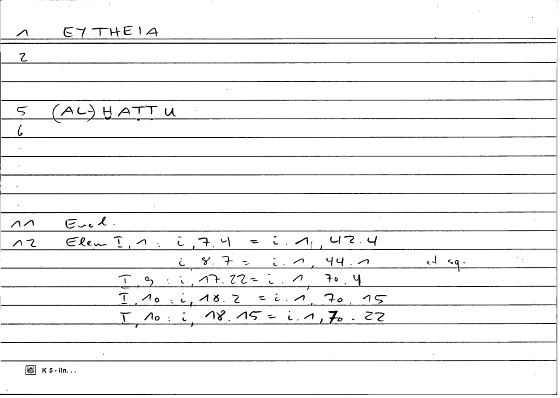 1 EYTHEIA
2
5 (AL-)ḪAṬṬU
6
11 Eucl.
12 Elem I, 1 : i, 7.4 = i. 1, 42.4
i, 8.7 = i. 1, 44.1 et sq.
I, 9 : i, 17.22 = i. 1, 70.4
I, 10 : i, 18.2 = i. 1, 70.15
I, 10 : i, 18.15 = i. 1, 70.22
K 5 - lin...